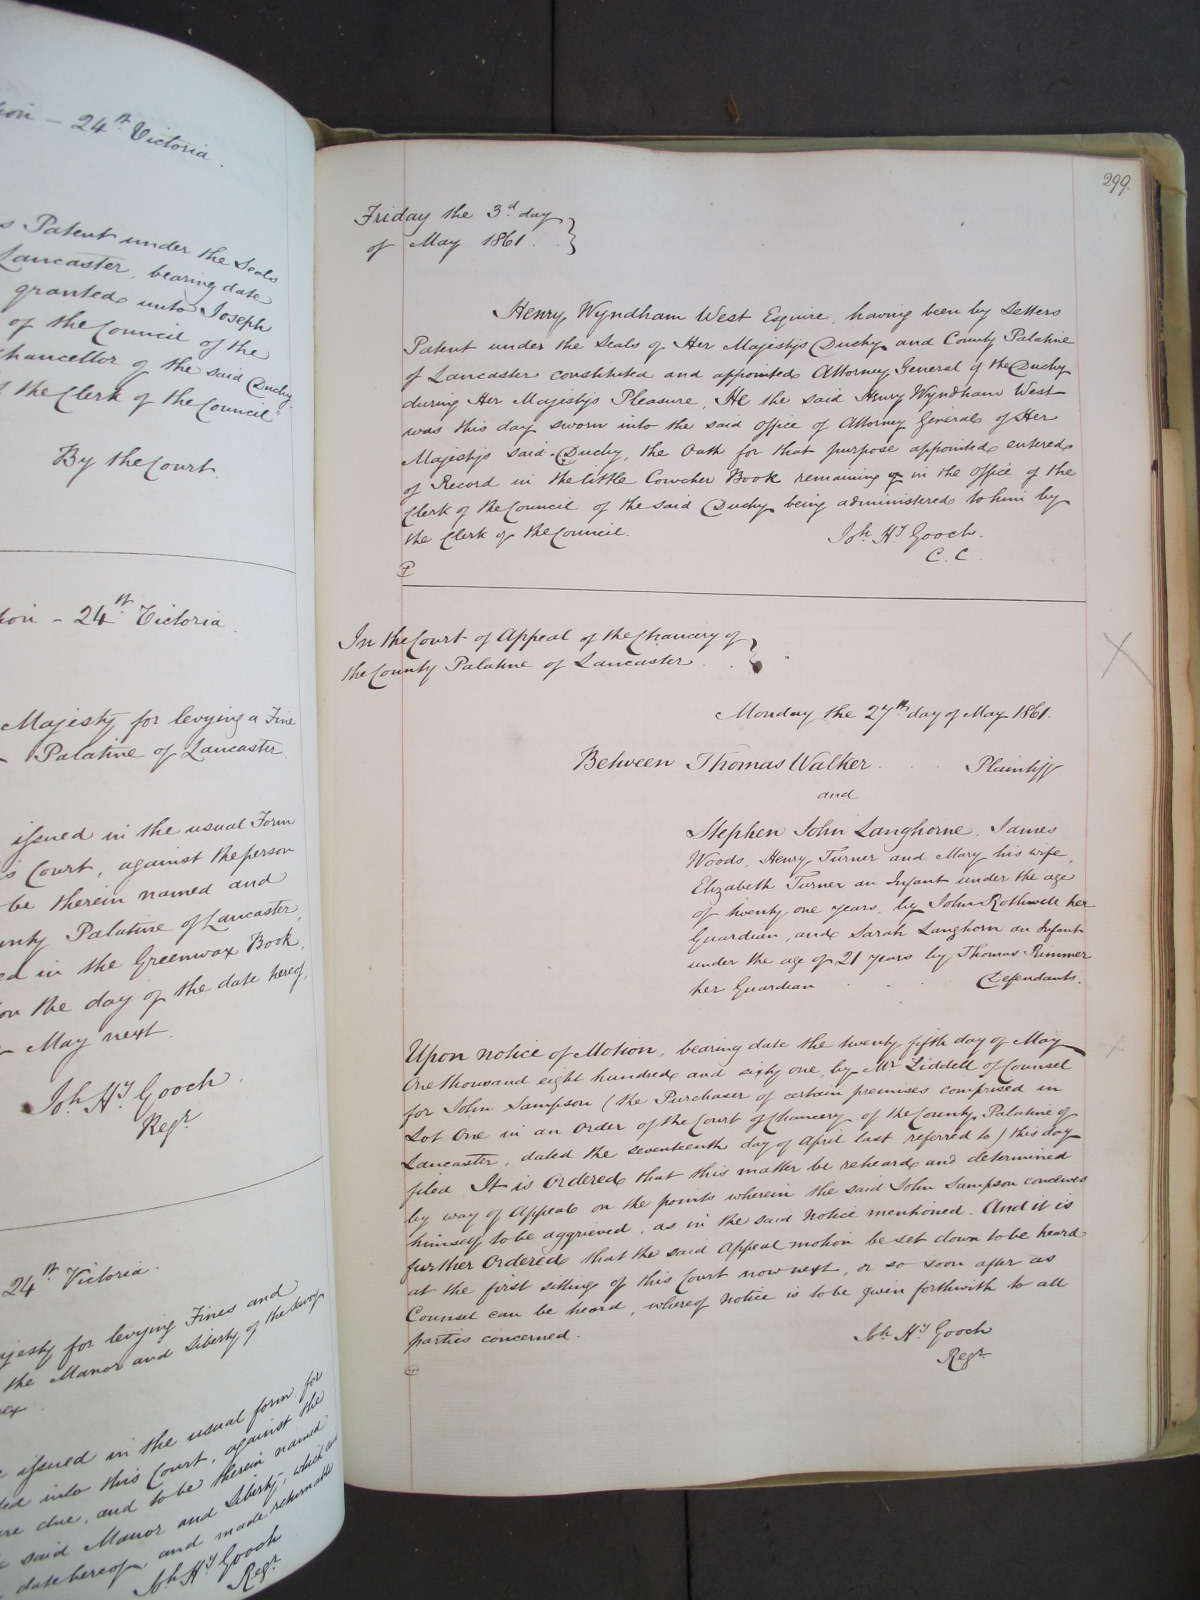 hion - 24th Victoria.
s Patent under the Seals
Lancaster, bearing date
granted unto Joseph
of the Council of the
hancellor of the said Duchy
the Clerk of the Council"
By the Court.
tion - 24th Victoria.
Majesty for levying a Fine
Palatine of Lancaster.
issued in the usual Form
s Court, against the person
be therein named and
unty Palatine of Lancaster,
ed in the Greenwax Book,
on the day of the date hereof,
May next.
Joh. Hy. Gooch.
Regr.
24th Victoria.
jesty for levying Fines and
the Manor and Liberty of the Savoy
ex
issued in the usual form for
ed into this Court, against the
are due, and to be therein named
said Manor and Liberty, which
date hereof, and made returnable
Joh. Hy. Gooch
Regr.
299.
Friday the 3d. day
of May 1861.
Henry Wyndham West Esquire, having been by Letters
Patent under the Seals of Her Majesty's Duchy and County Palatine
of Lancaster constituted and appointed Attorney General of the Duchy
during Her Majesty's Pleasure, He the said Henry Wyndham West
was this day sworn into the said Office of Attorney General of Her
Majesty's said Duchy, the Oath for that purpose appointed entered
of Record in the little Cowcher Book remaining in the Office of the
Clerk of the Council of the said Duchy being administered to him by
the Clerk of the Council.
Joh. Hy. Gooch.
C. C
In the Court of Appeal of the Chancery of
the County Palatine of Lancaster
Monday the 27th day of May 1861.
Between Thomas Walker . . Plaintiff
and
Stephen John Langhorne, James
Woods, Henry Turner and Mary his wife,
Elizabeth Turner an Infant under the age
of twenty one years, by John Rothwell her
Guardian, and Sarah Langhorn an Infant
under the age of 21 years by Thomas Rimmer
her Guardian . . Defendants.
Upon notice of Motion, bearing date the twenty fifth day of May
One thousand eight hundred and sixty one, by Mr. Liddell of Counsel
for John Sampson (the Purchaser of certain premises comprised in
Lot One in an Order of the Court of Chancery, of the County Palatine of
Lancaster, dated the seventeenth day of April last referred to) this day
filed It is Ordered that this matter be reheard and determined
by way of Appeal on the points wherein the said John Sampson conceives
himself to be aggrieved, as in the said Notice mentioned. And it is
further Ordered that the said Appeal motion be set down to be heard
at the first sitting of this Court now next, or so soon after as
Counsel can be heard, whereof Notice is to be given forthwith to all
parties concerned.
Joh. Hy. Gooch
Regr.